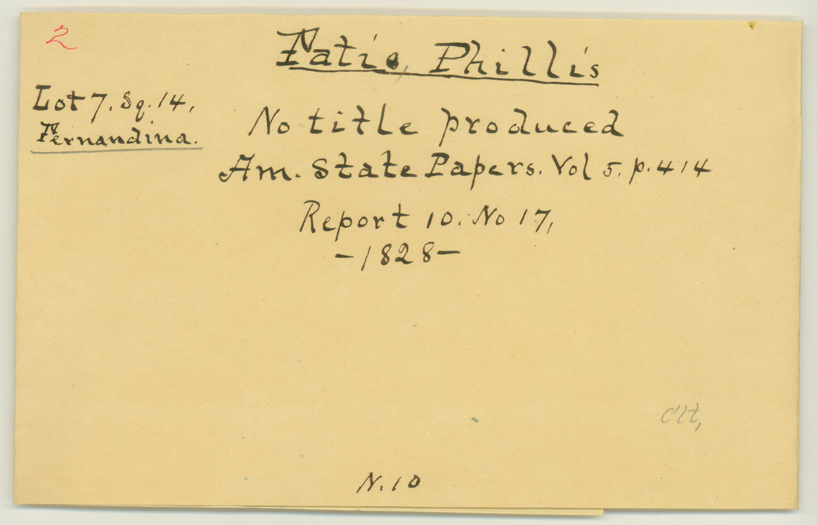 2
Fatio, Phillis
Lot 7. Sq. 14,
Fernandina.
No title produced
Am. State Papers. Vol 5. p. 414
Report 10. No 17,
-1828-
N. 10